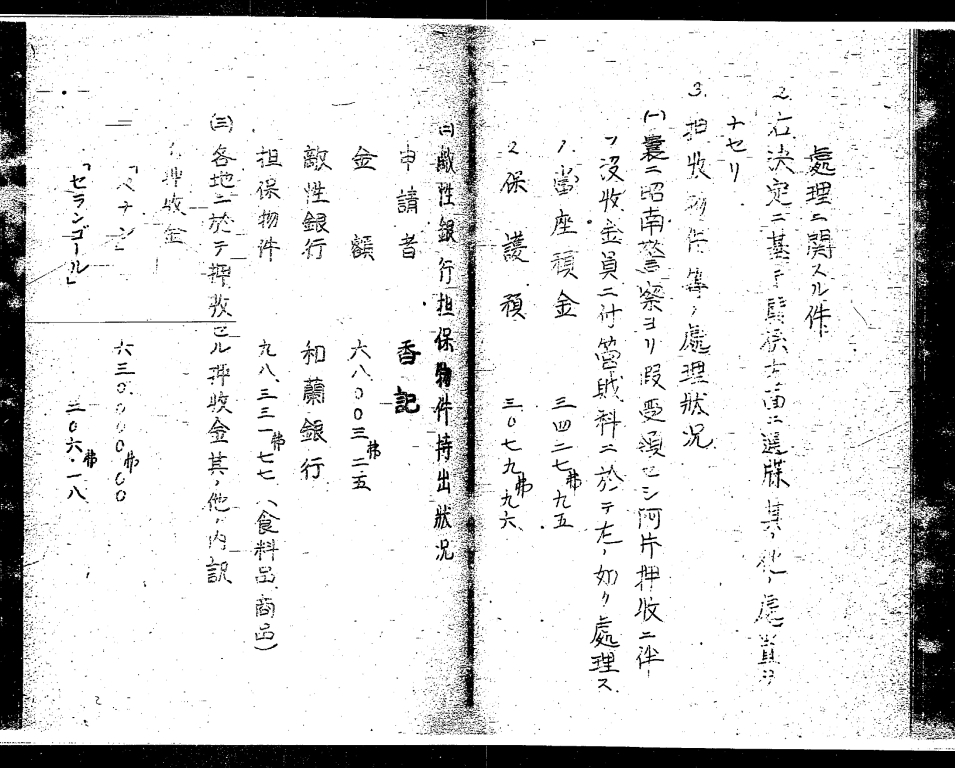 處理ニ關スル件
2. 右決定ニ基キ關係方面ニ通牒其ノ他ノ處置ヲ
ナセリ
3. 押收物件等ノ處理狀況
(一) 曩ニ昭南警察ヨリ假受領セシ阿片押收ニ伴
フ沒收金員ニ付管財科ニ於テ左ノ如ク處理ス
1 當座預金 三四二七弗九五
2 保護預 三〇七九弗九六
(二) 敵性銀行担保物件持出狀況
申請者 香記
金額 六八、〇〇三弗二五
敵性銀行 和蘭銀行
担保物件 九八、三三一弗七七 (食料品、商品)
(三) 各地ニ於テ押收セル押收金其ノ他ノ內訳
1. 押收金
「ペナン」 六三〇、〇〇〇弗〇〇
「セランゴール」 二〇六・弗一八
2